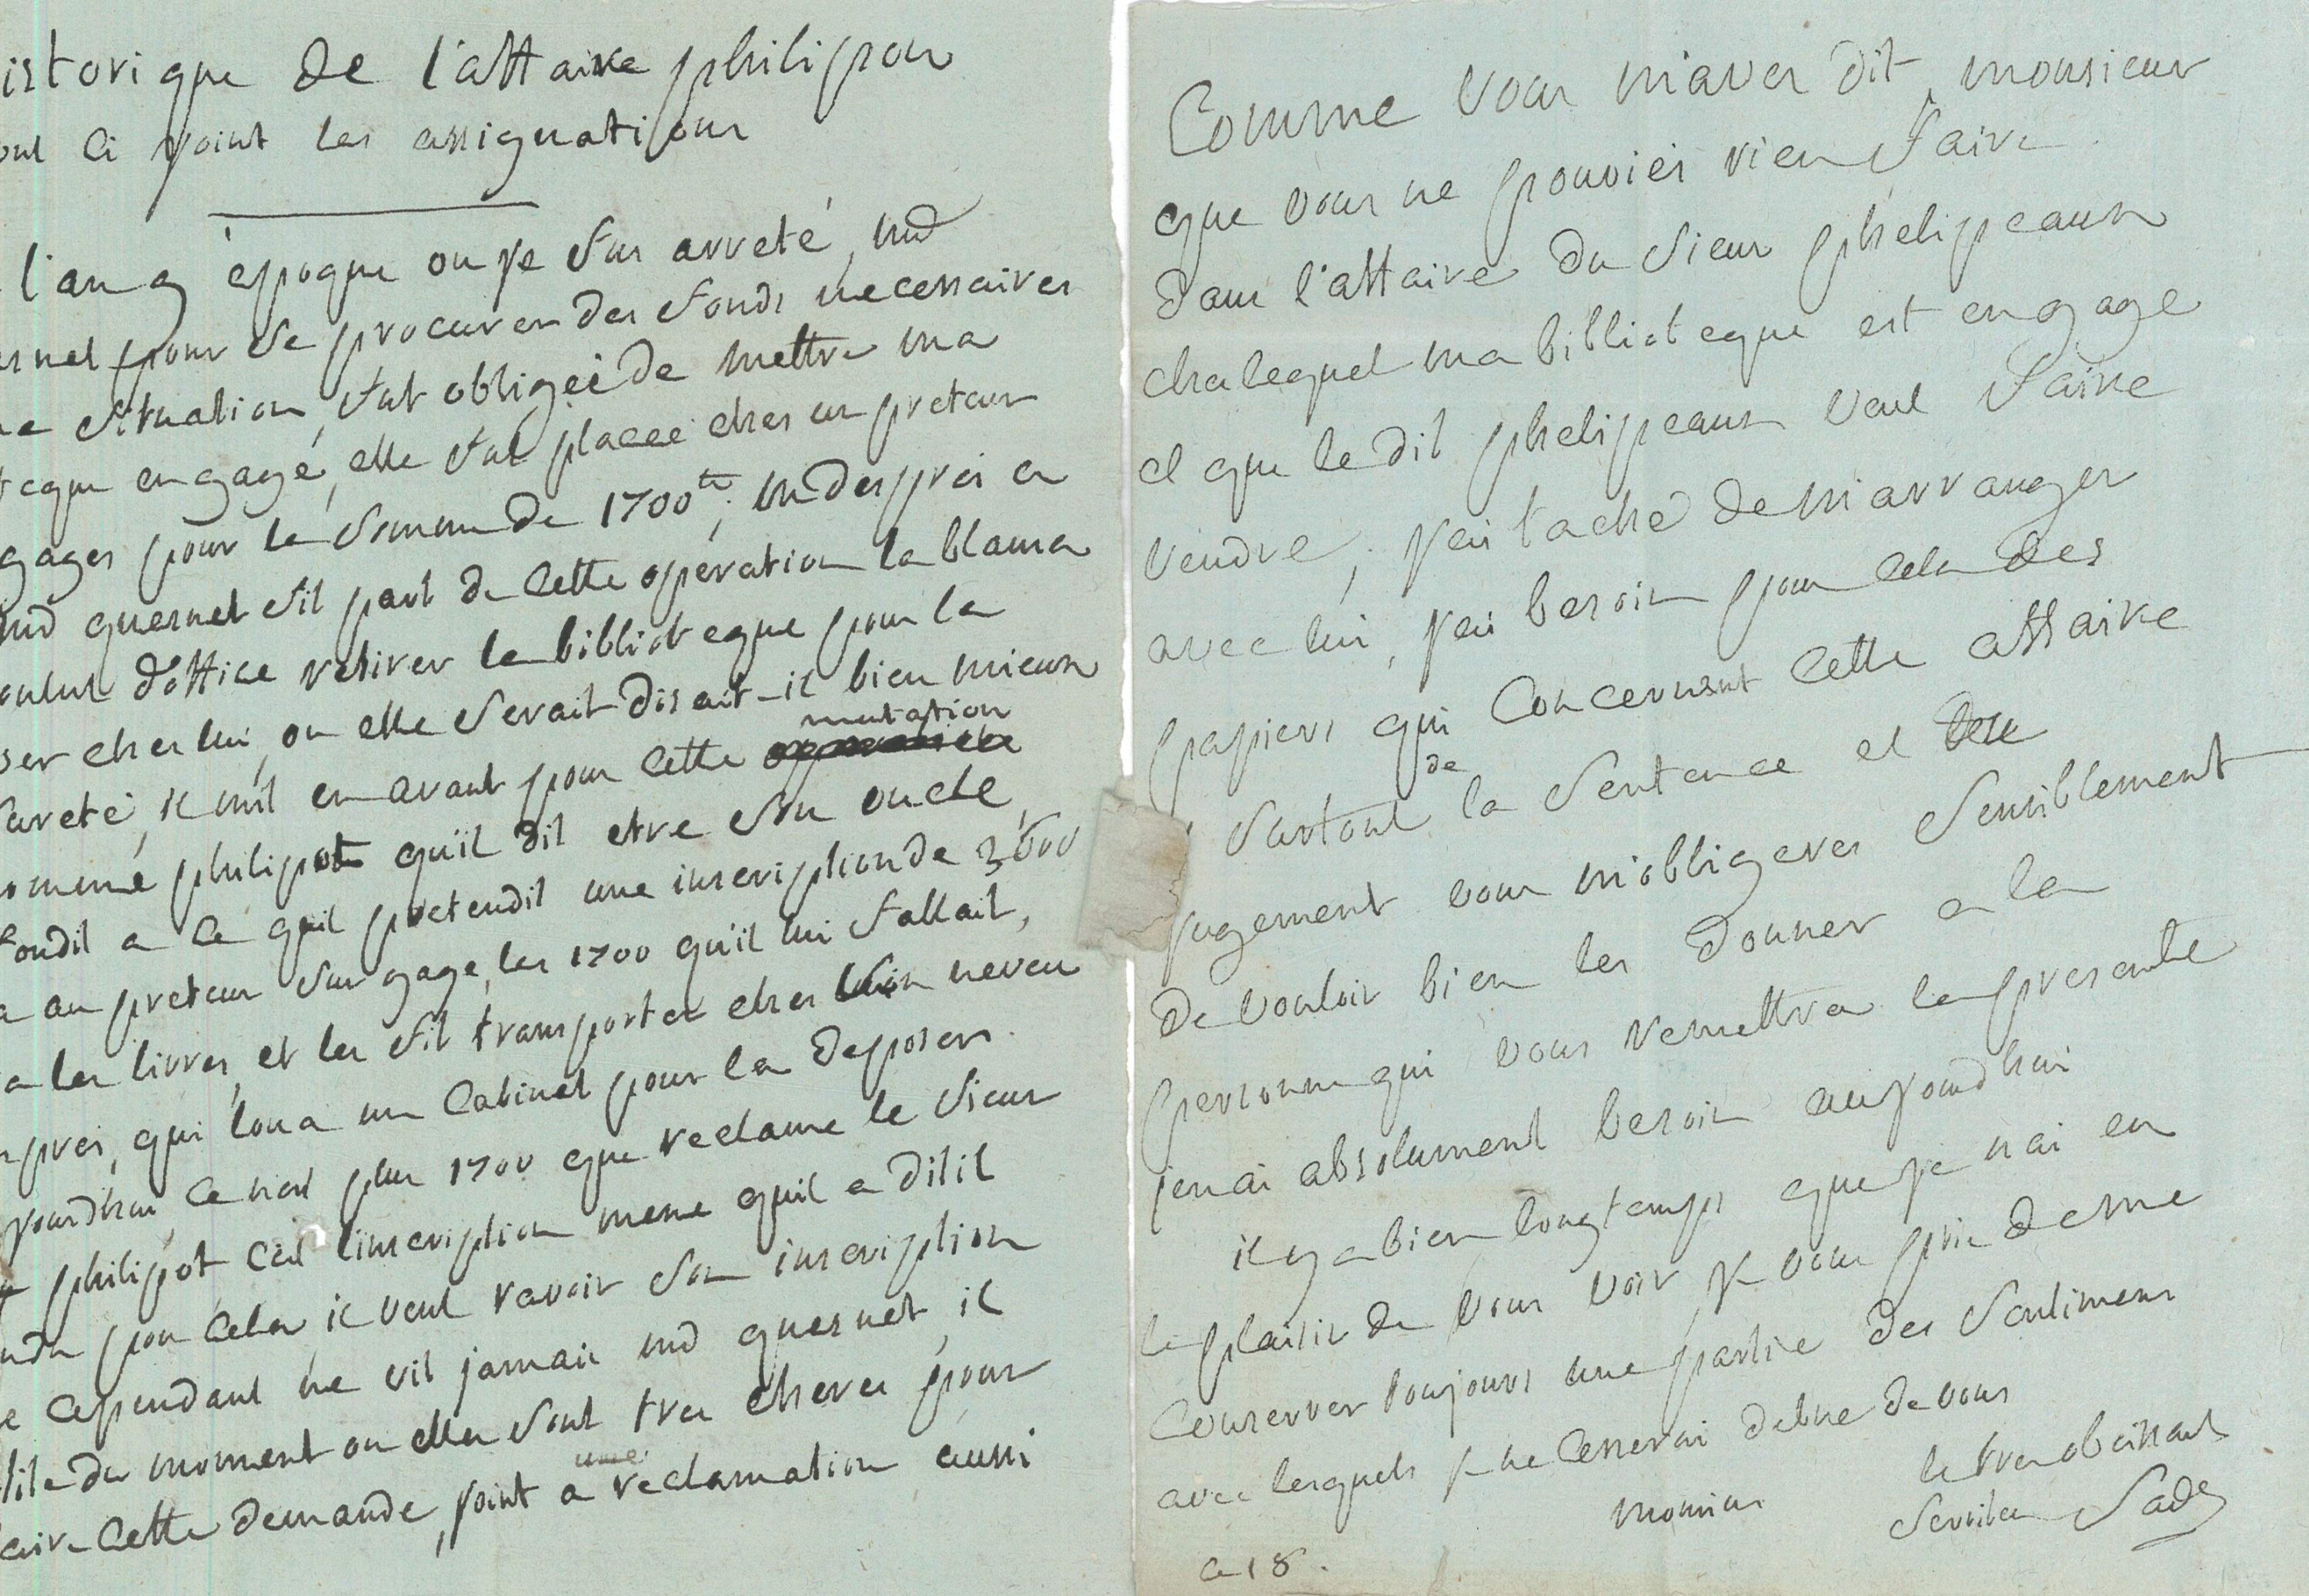 istorique de l'affaire philipon
ont ci joint les assignations
l'an 9 époque ou je fus arreté, md
esnet pour se procurer des fonds necessaires
situation, fut obligée de mettre ma
teque en gagé, elle fut placée ches un preteur
gages pour la somme de 1700tt; un desprei a
md quesnet fit part de cette opération la blama
voulut d'office retirer la biblioteque pour la
ser ches lui, ou elle serait disait-il bien mieux
sureté, il mit en avant pour cette mutation
ommé philipot qu'il dit etre son oncle,
fondit a ce quil pretendit une inscription de 3000
a au preteur sur gage, les 1700 qu'il lui fallait,
a les livres, et les fit transporter ches son neveu
sprei, qui loua un cabinet pour les deposer.
jourdhui ce nest plus 1700 que reclame le sieur
philipot cest l'inscription meme quil a dit il
endu pour cela, il veut ravoir son inscription
cependant ne vit jamais md quesnet, il
fite du moment ou elles sont tres cheres pour
aire cette demande, joint a une reclamation aussi
Comme vous m'aves dit monsieur
que vous ne pouviés rien faire
dans l'affaire du sieur phelipeaux
ches lequel ma biblioteque est en gage
et que le dit phelipeaux veut faire
vendre, j'ai taché de m'arranger
avec lui, j'ai besoin pour cela des
papiers qui concernent cette affaire
surtout de la sentence et
jugement vous m'obbligeres sensiblement
de vouloir bien les donner a la
personne qui vous remettra la presente
jen ai absolument besoin aujourdhui
il y a bien longtemps que je n'ai eu
le plaisir de vous voir, je vous prie de me
conserver toujours une partie des sentimens
avec lesquels je ne cesserai detre de vous
monsieur le tres obeissant
serviteur Sade
ce 18.